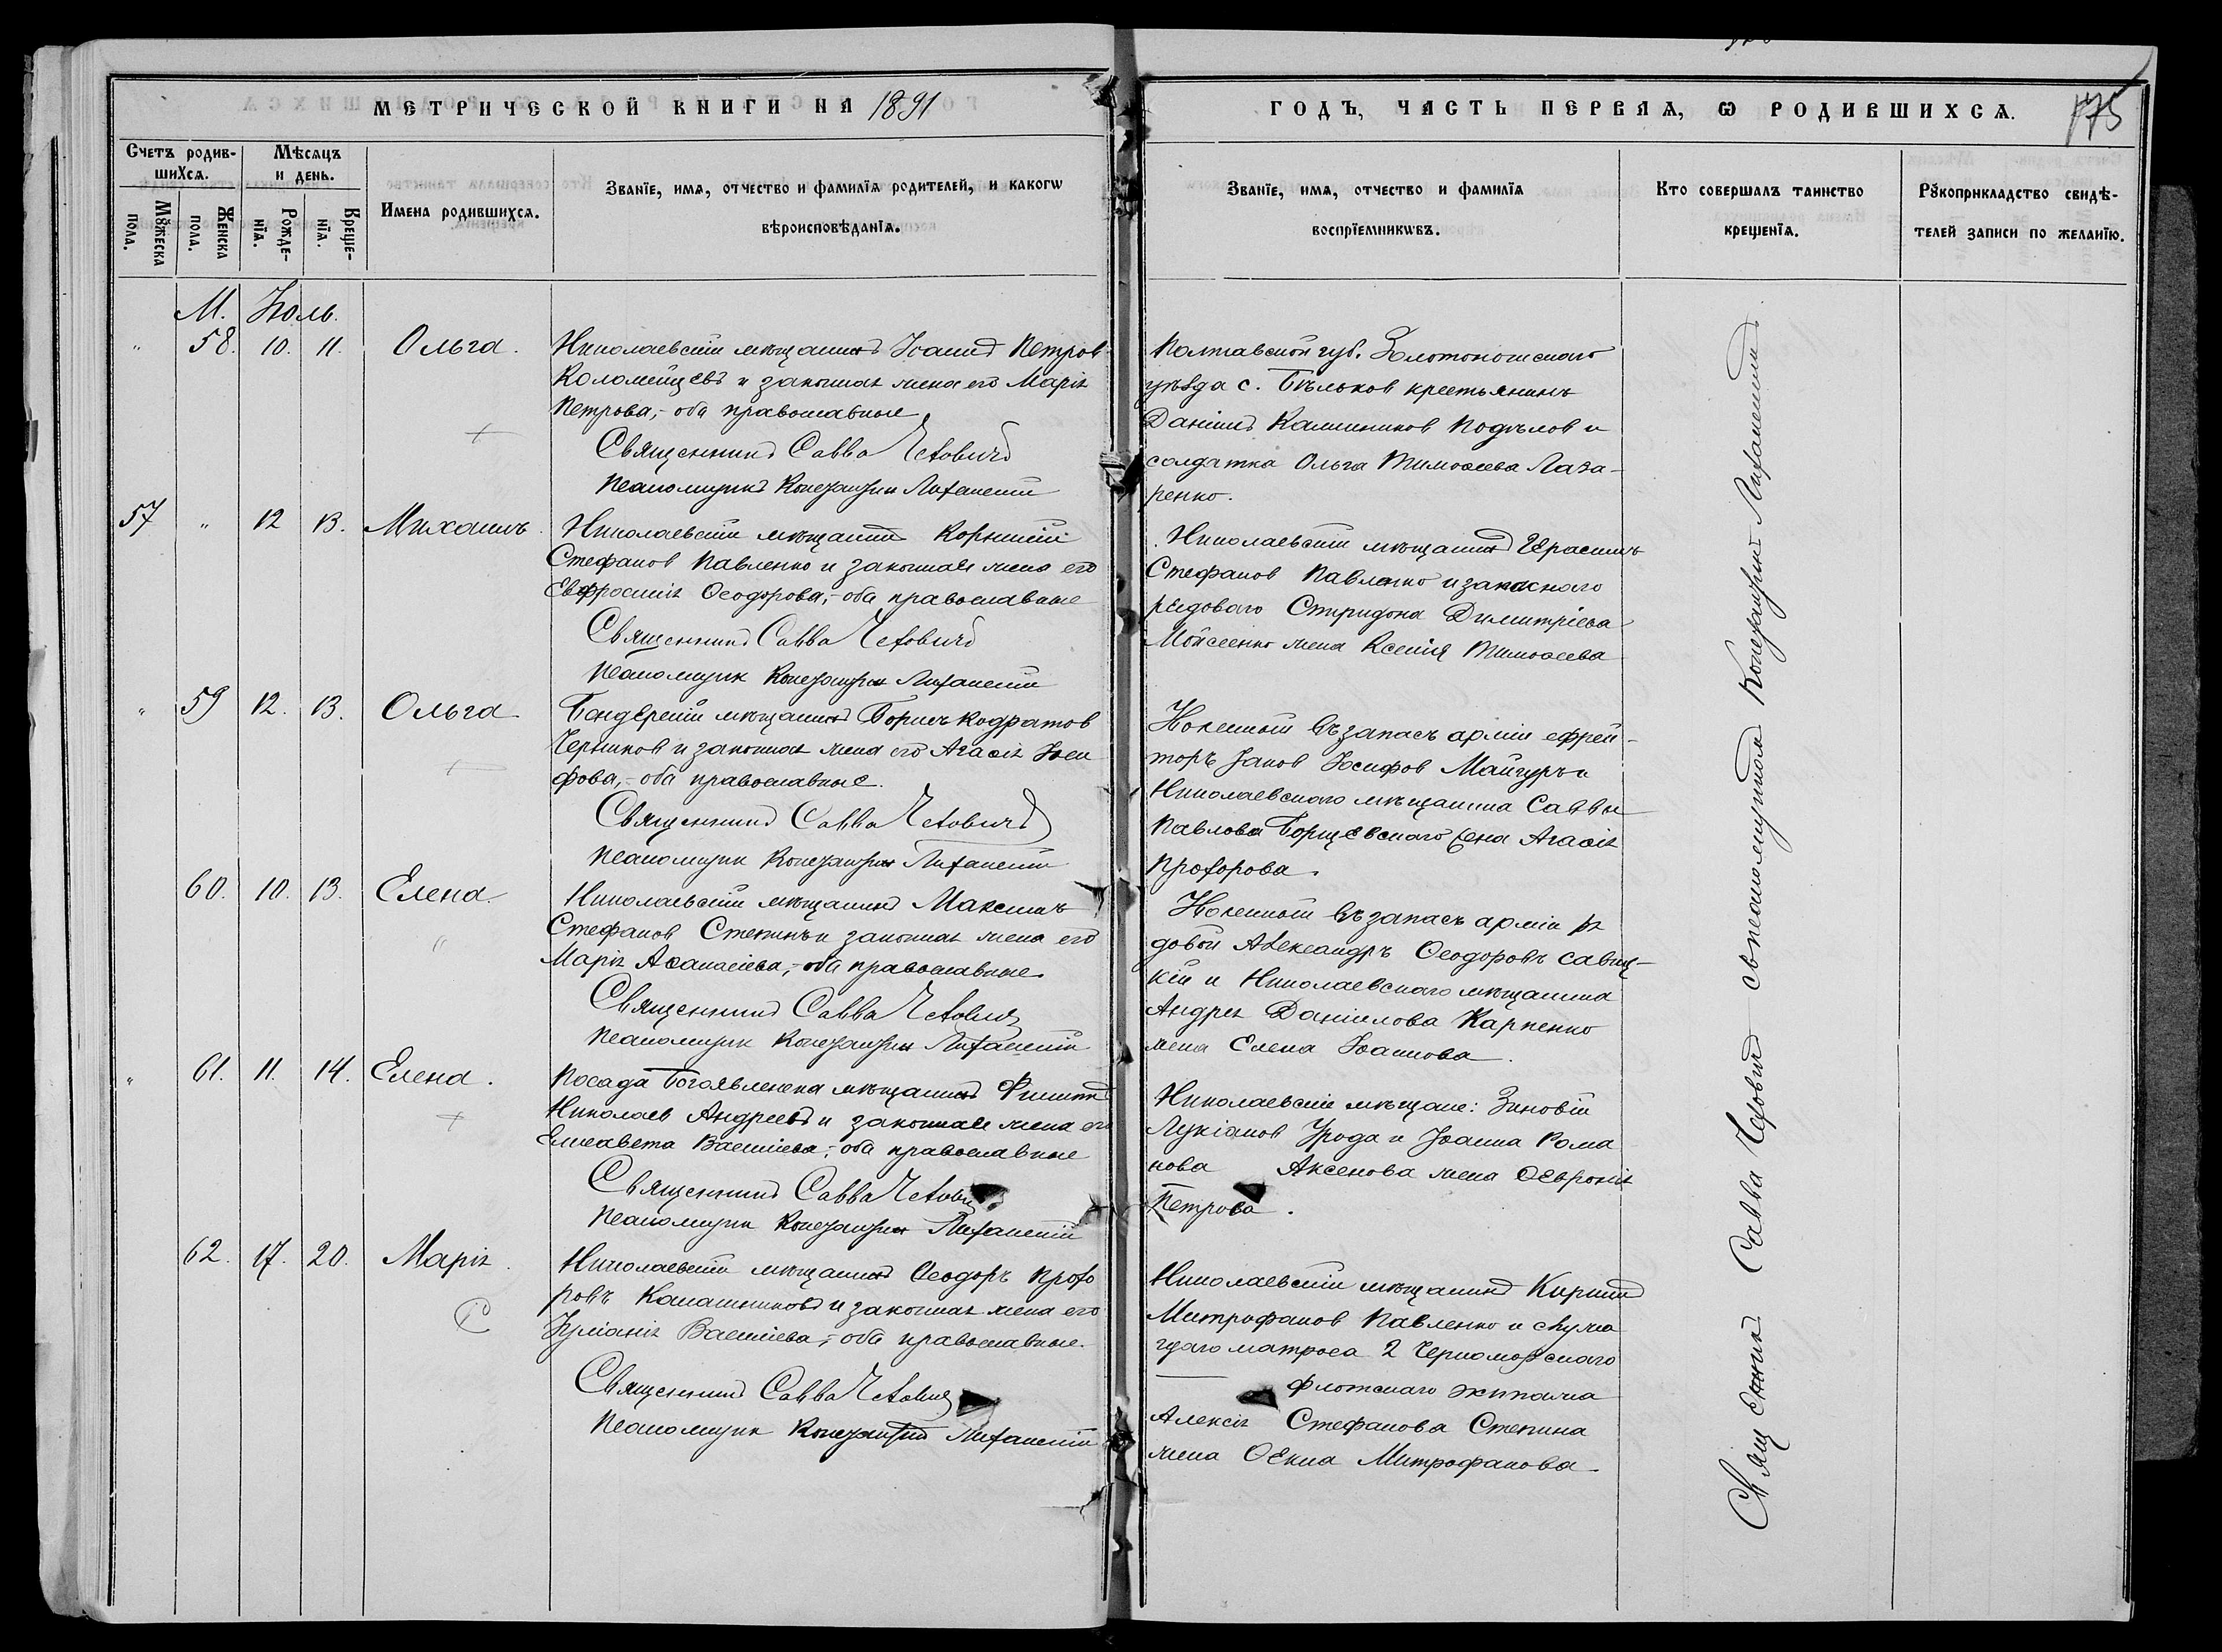 МЕТРИЧЕСКОЙ КНИГИ НА 1891
ГОДЪ, ЧАСТЬ ПЕРВАЯ, Ѡ РОДИВШИХСѦ.
175
Счетъ родив-
шихсѧ.
Мѣсѧцъ
и день.
Мꙋжеска
пола.
Женска
пола.
Рожде-
нїѧ.
Креще-
нїѧ.
Имена родившихсѧ.
Званїе, имѧ, отчество и фамилїѧ родителей, и какогѡ
вѣроисповѣданїѧ.
Званїе, имѧ, отчество и фамилїѧ
воспрїемникѡвъ.
Кто совершалъ таинство
крещенїѧ.
Рꙋкоприкладство свидѣ-
телей записи по желанїю.
М. Іюль.
" 58. 10. 11. Ольга.
Николаевскій мѣщанинъ Іоаннъ Петров
Коломѣйцевъ и законная жена его Марія
Петрова,- оба православные
Священникъ Савва Чехович
Псаломщикъ Константин Лифанскій
Полтавской губ. Золотоношскаго
уѣзда с. Бѣльков крестьянинъ
Даніилъ Калинников Подѣлов и
солдатка Ольга Тимоѳеева Лаза-
ренко.
57 " 12 13. Михаилъ.
Николаевскій мѣщанинъ Корнилій
Стефанов Павленко и законная жена его
Евфросинія Ѳеодорова,- оба православные
Священникъ Савва Чехович
Псаломщик Константин Лифанскій
Николаевскій мѣщанинъ Герасимъ
Стефанов Павленко и запаснаго
рядоваго Спиридона Димитріева
Мойсеенко жена Ксенія Тимоѳеева
" 59 12. 13. Ольга
мѣщанинъ Борисъ Кодратов
Черников и законная жена его Агаѳія Іоси
фова,- оба православные.
Священникъ Савва Чехович
Псаломщик Константин Лифанскій
въ запасъ арміи ефрей-
торъ Іаков Іосифов Майгуръ и
Николаевскаго мѣщанина Саввы
Павлова Борщевскаго жена Агаѳія
Прохорова.
60. 10. 13. Елена.
Николаевскій мѣщанинъ Максимъ
Стефанов Степинъ и законная жена его
Марія Аѳанасіева,- оба православные
Священникъ Савва Чехович
Псаломщик Константин Лифанскій
въ запасъ арміи ря
довой Александръ Ѳеодоровъ Савиц-
кій и Николаевскаго мѣщанина
Андрея Даніилова Карпенко
жена Елена Іоаннова.
" 61. 11. 14. Елена.
Посада Богоявленска мѣщанинъ Филиппъ
Николаев Андреевъ и законная жена его
Елисавета Василіева,- оба православные
Священникъ Савва
Псаломщик Константин Лифанскій
Николаевскіе мѣщане: Зиновій
Лукіанов Урода и Іоанна Рома
нова Аксенова жена Ѳевронія
Петрова.
62. 17. 20. Марія.
Николаевскій мѣщанинъ Ѳеодоръ Прохо
ровъ Калашниковъ и законная жена его
Іуліанія Василіева,- оба православные.
Священникъ Савва Чехович
Псаломщик Константинъ Лифанскій
Николаевскій мѣщанинъ Кириллъ
Митрофанов Павленко и служа
щаго матроса 2 Черноморскаго
флотскаго экипажа
Алексія Стефанова Степина
жена Ѳекла Митрофанова.
Священникъ Савва Чехович съ псаломщикомъ Константин Лифанскимъ